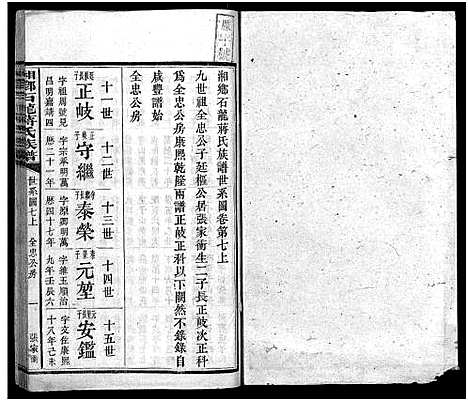 湘鄉石龍蔣氏族譜世系圖卷第七上
九世祖全忠公子廷樞公居張家衝生二子長正歧次正科
為全忠公房康熙乾隆兩譜正歧正科以下闕然不錄錄自
咸豐譜始
全忠公房
十一世 十二世 十三世 十四世 十五世
正歧 守繼 泰榮 元堃 安鑑
字祖周號見
昌明嘉靖四
字宗承明萬
曆二十一年
字原卿明萬
曆四十七年
字維王順治
九年壬辰六
字文佐康熙
十八年己未
湘鄉石龍蔣氏族譜
世系圖七上
全忠公房
一
張家衝